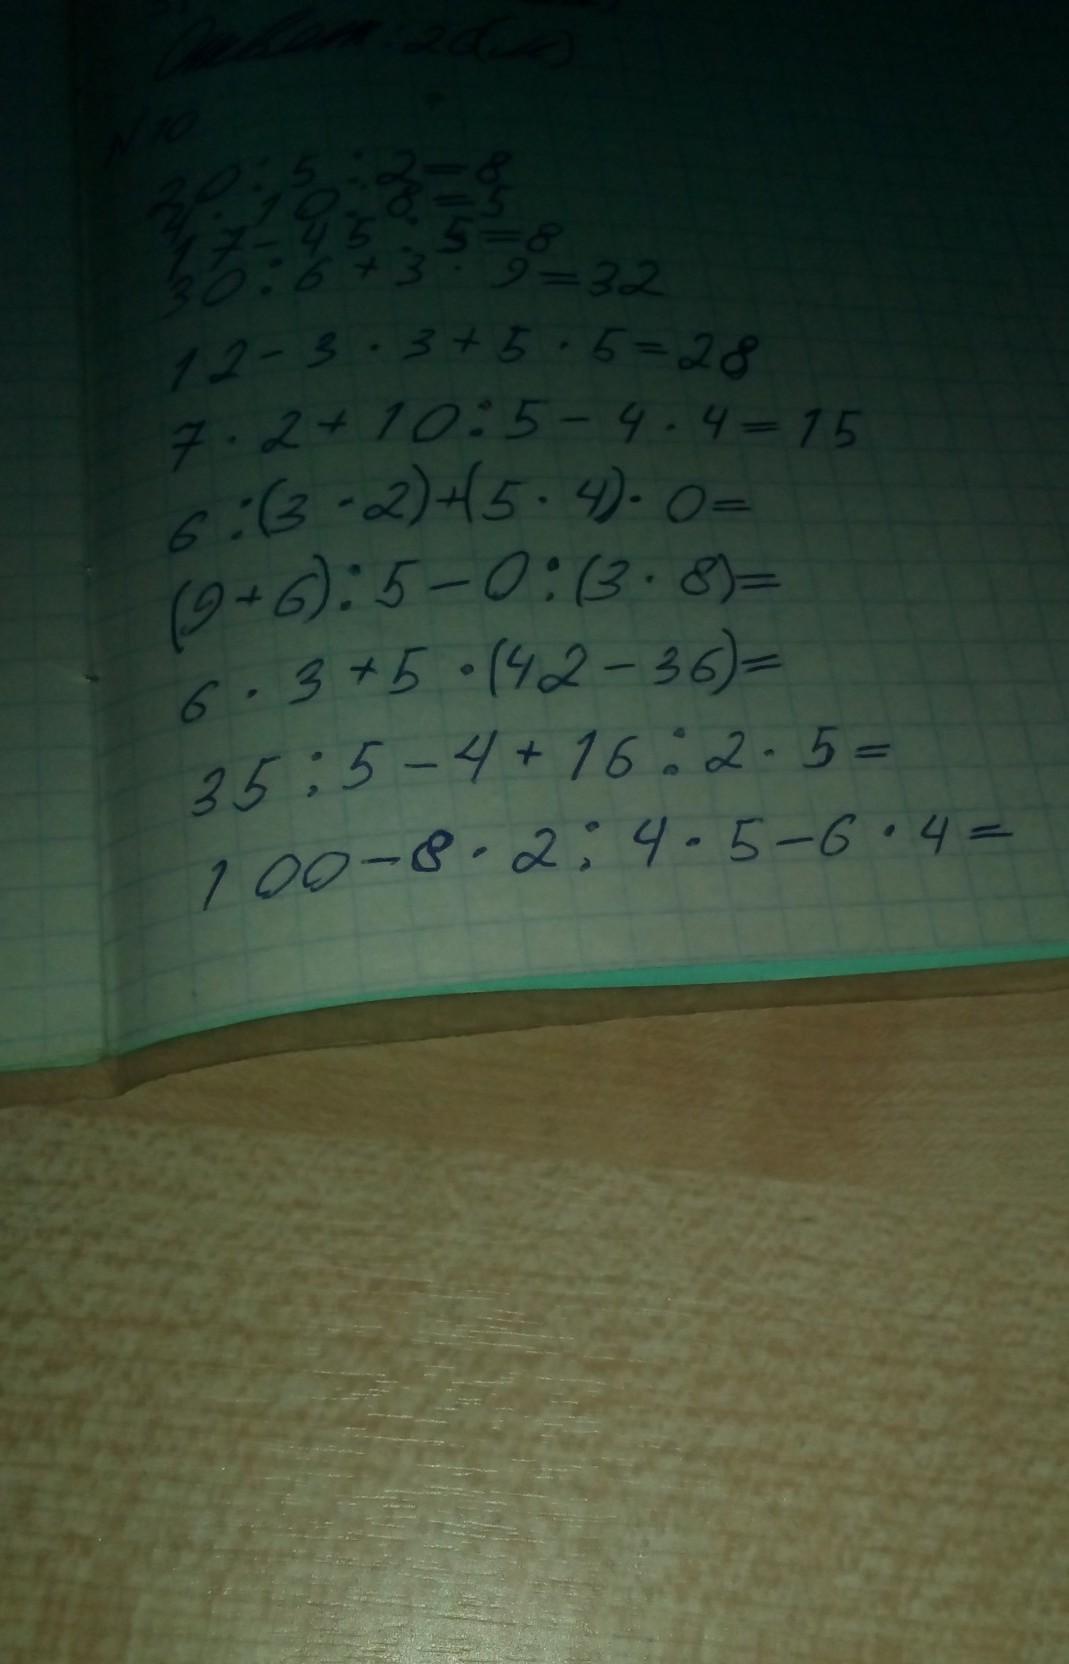 Ответ: 20(м)
N 10
20 : 5 : 2 = 8
4 · 10 : 8 = 5
17 - 45 : 5 = 8
30 : 6 + 3 · 9 = 32
12 - 3 · 3 + 5 · 5 = 28
7 · 2 + 10 : 5 - 4 · 4 = 15
6 : (3 · 2) + (5 · 4) · 0 =
(9 + 6) : 5 - 0 : (3 · 8) =
6 · 3 + 5 · (42 - 36) =
35 : 5 - 4 + 16 : 2 · 5 =
100 - 8 · 2 : 4 · 5 - 6 · 4 =